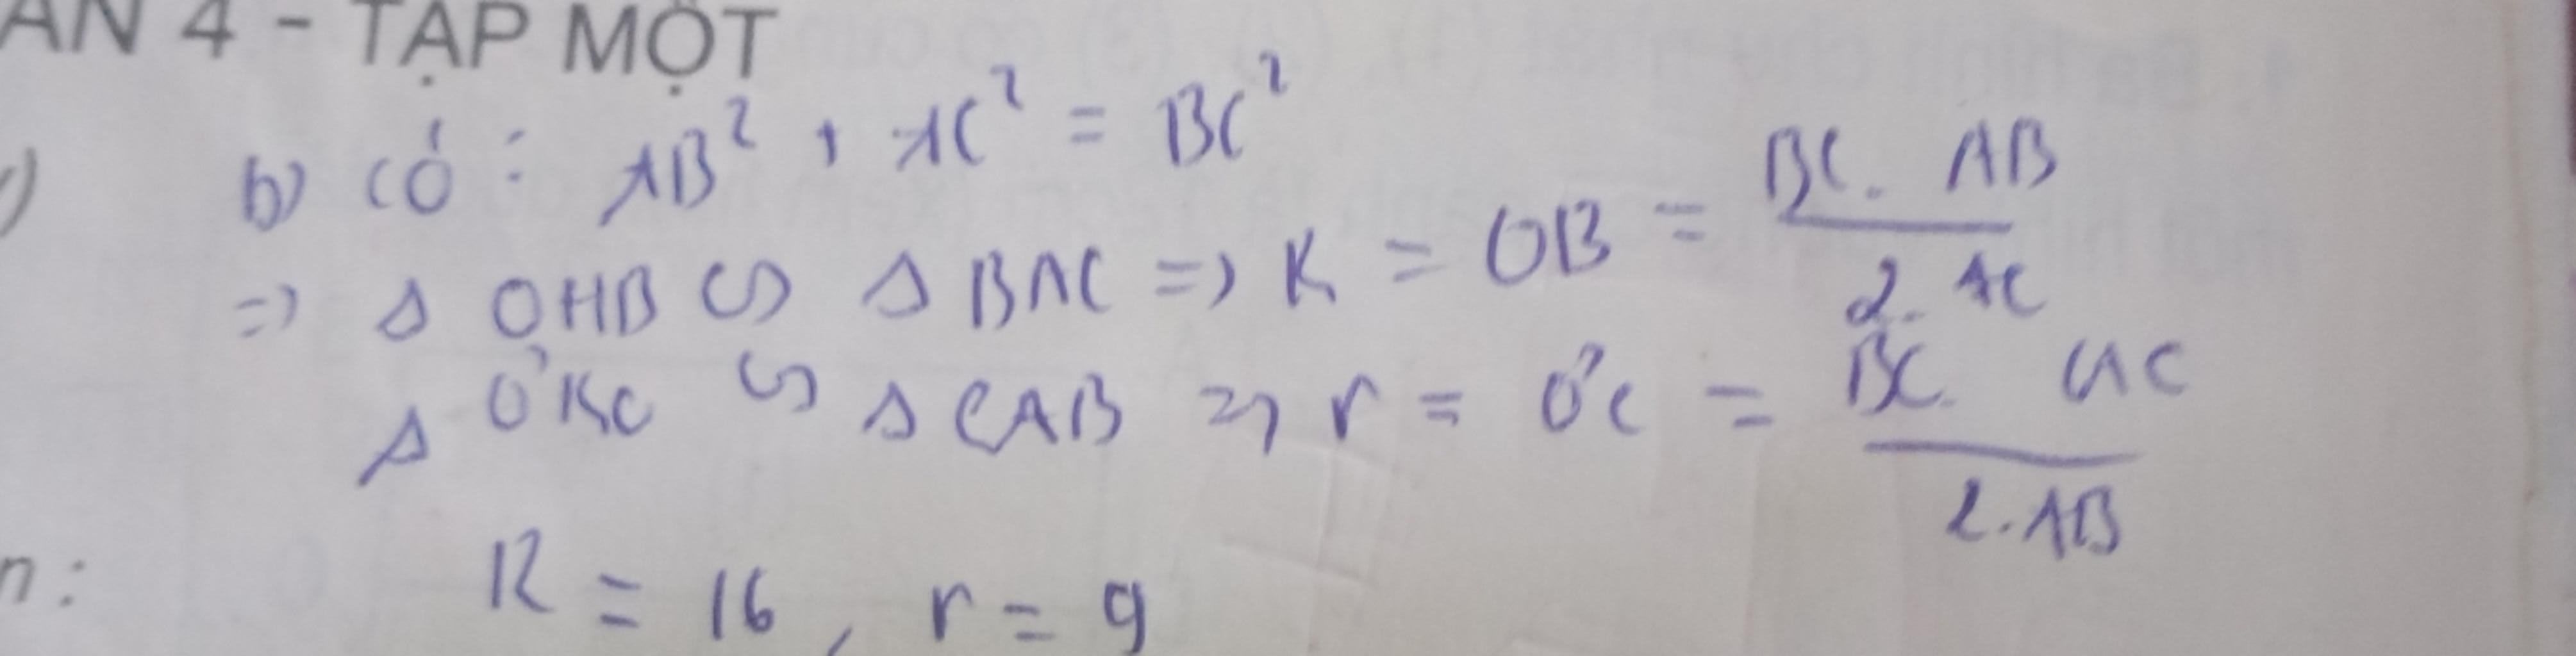 ÁN 4 - TẬP MỘT
b) Có : AB² + AC² = BC²
=> Δ OHB ∽ Δ BAC => R = OB = BC. AB / 2. AC
Δ O'KC ∽ Δ CAB => r = O'C = BC. AC / 2. AB
R = 16, r = 9
n: